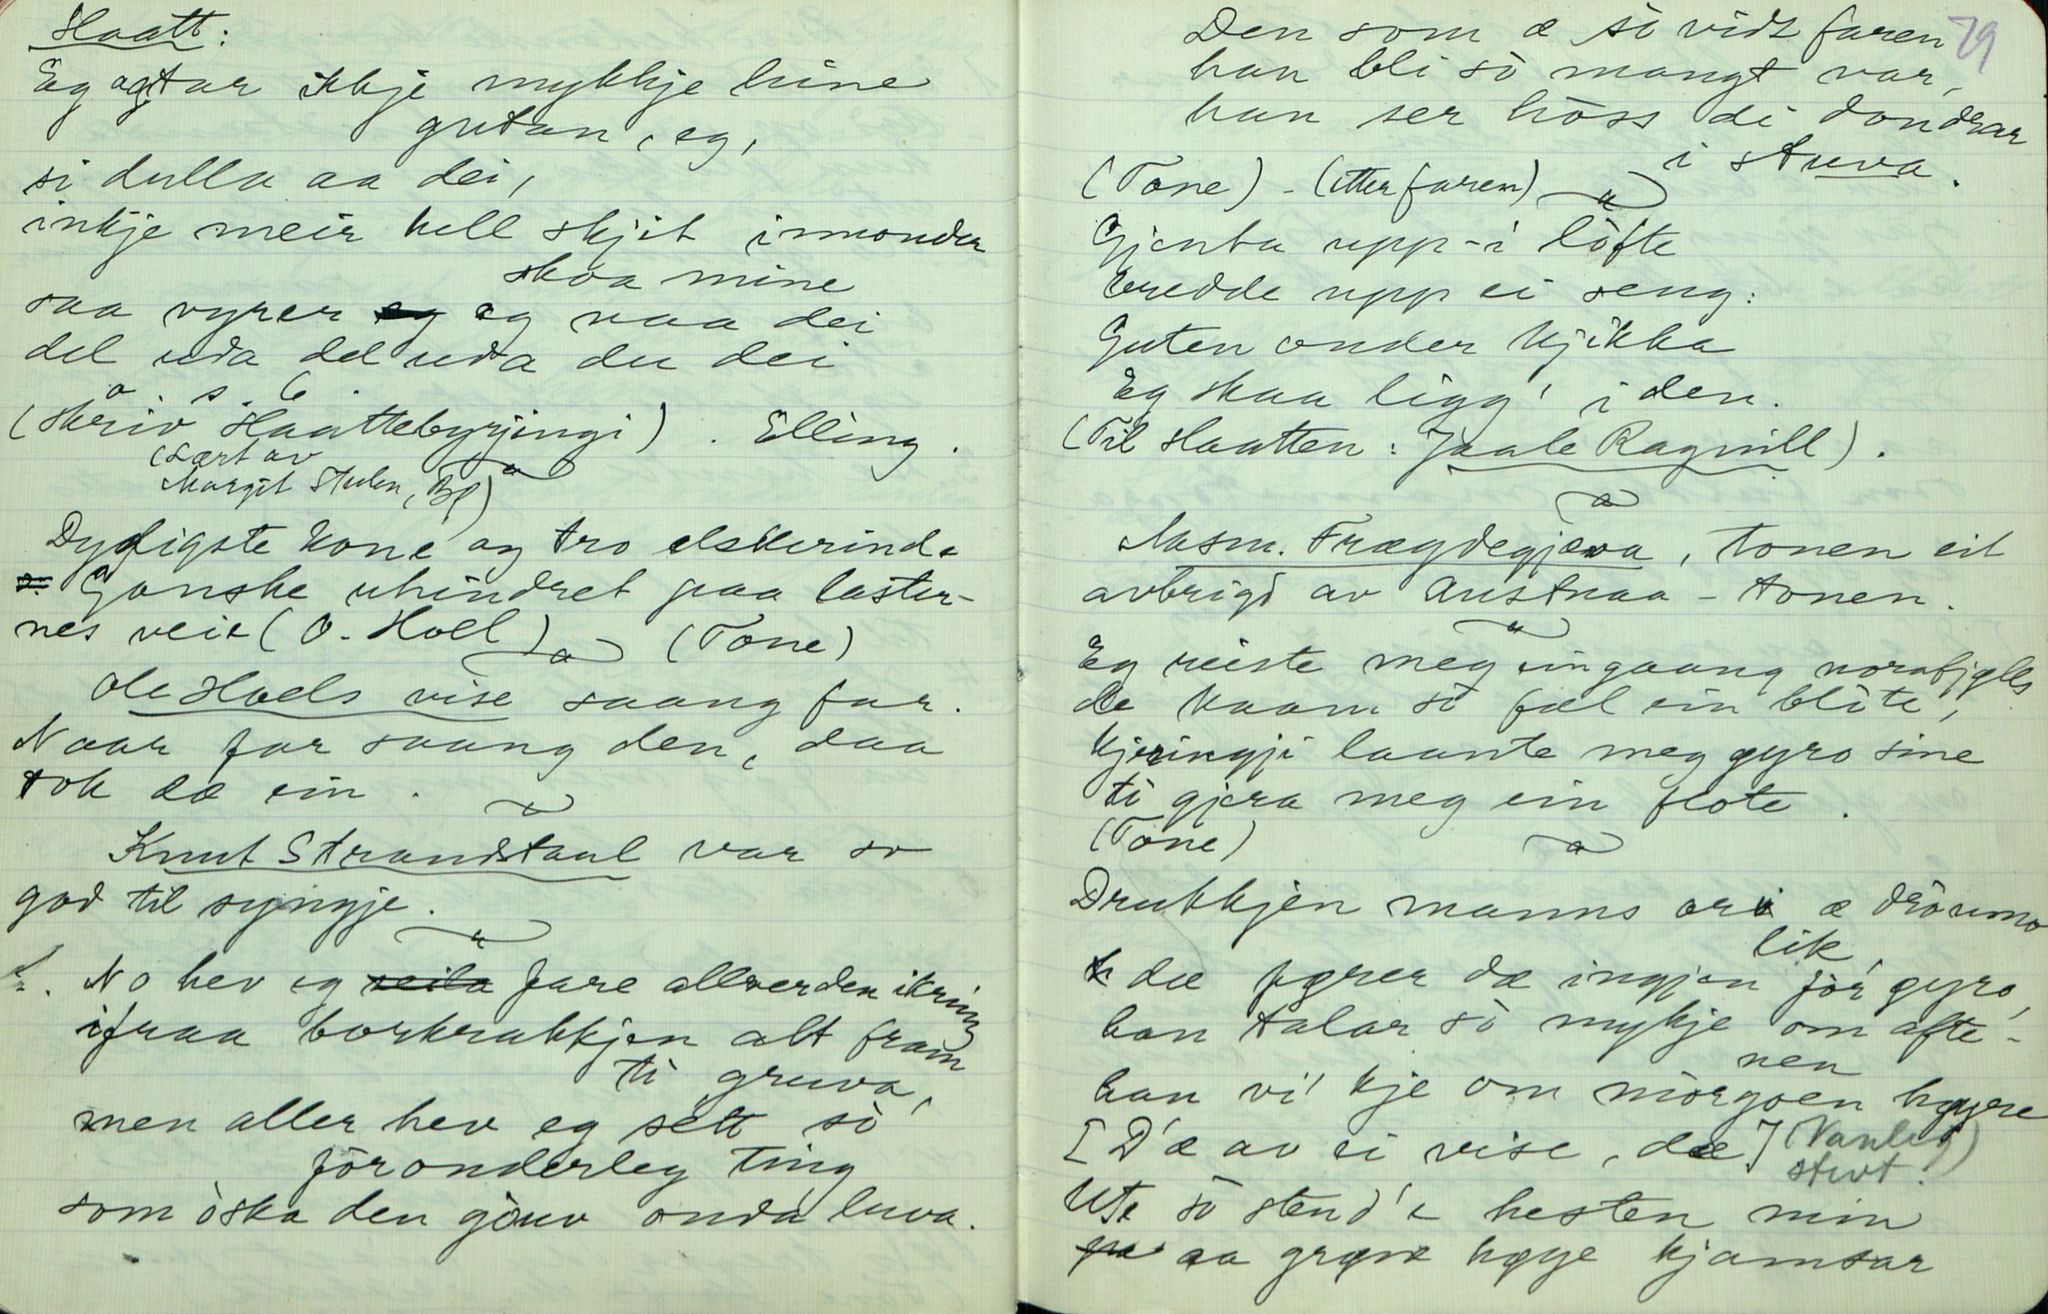 Haatt:
Eg agtar ikkje mykkje hine
gutan, eg,
si dulla aa dei,
inkje meir hell skjit i monder
skoa mine
saa vyrer eg eg naa dei
del uda del uda du dei
(skriv Haattebyrjingi). Elling.
(Lært av
Margit Stuken, Bø)
Dydigste kone og tro elskerinde
Ganske uhindret paa laster-
nes veie (O. Hoel) (Tone)
Ole Hoels vise saang far.
Naar far saang den, daa
tok dæ ein.
Knut Strandstaul var so
god til syngje.
No hev eg reila fare allverden ikring
ifraa borkrakkjen alt fram
ti gruva,
men aller hev eg sett sò
fòronderleg ting
som òska den gòuv onda luva.
79
Den som æ sò vidt faren
han bli sò mangt var,
han ser hòss di dondrar
i stuva.
(Tone) - (etter faren)
Gjenta upp-i lòfte
bredde upp ei seng:
Guten onder kjikka
Eg skaa ligg' i den.
(Til Haatten: Jaale Ragnill).
Aasm. Frægdegjæva, tonen eit
avbrigd av Austnaa-tonen.
Eg reiste meg eingaang norafjølls
de kaam sò fæl ein blòte,
kjeringji laante meg gyro sine
ti gjera meg ein flote.
(Tone)
Drukkjen manns ori æ drôumo
lik
dæ fører dæ ingjen fòr gyro,
han talar sò mykje om afte-
nen
han vi' kje om mòrgoen høyre
[D'æ av ei vise, dæ] (Vanleg
stevt.)
Ute sò stend'e hesten min
aa grøne høye kjamsar